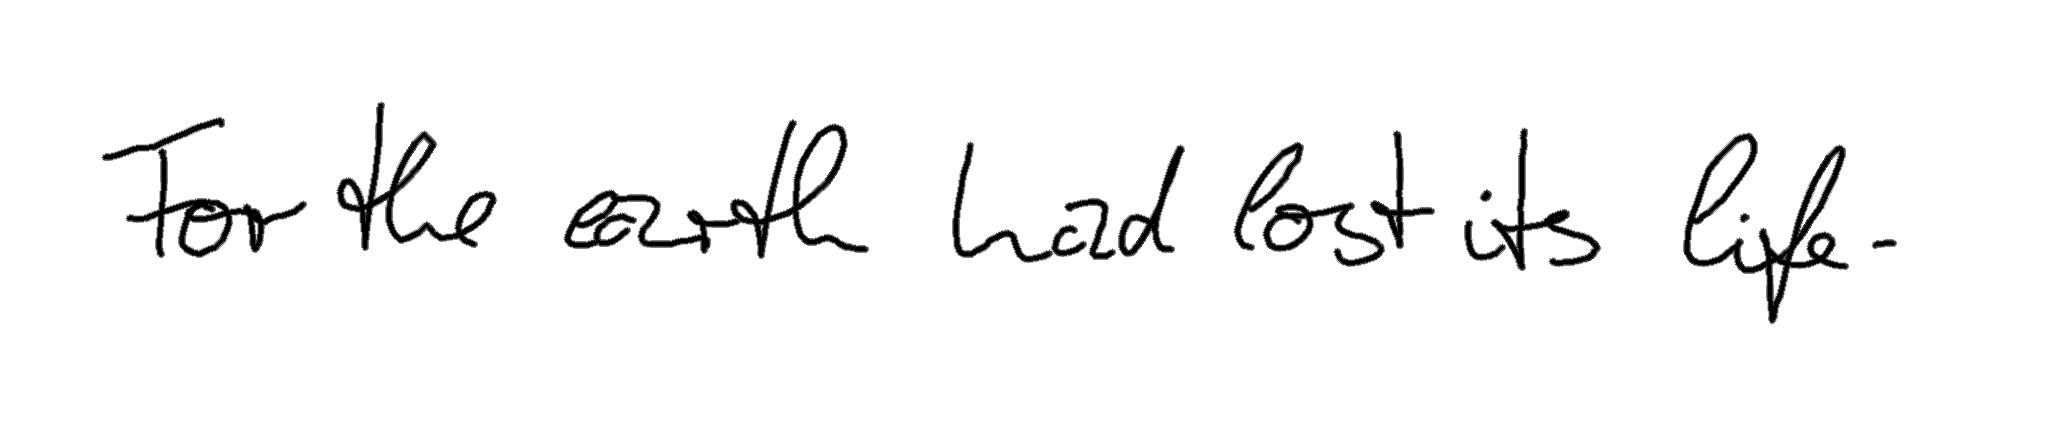 For the earth had lost its life-